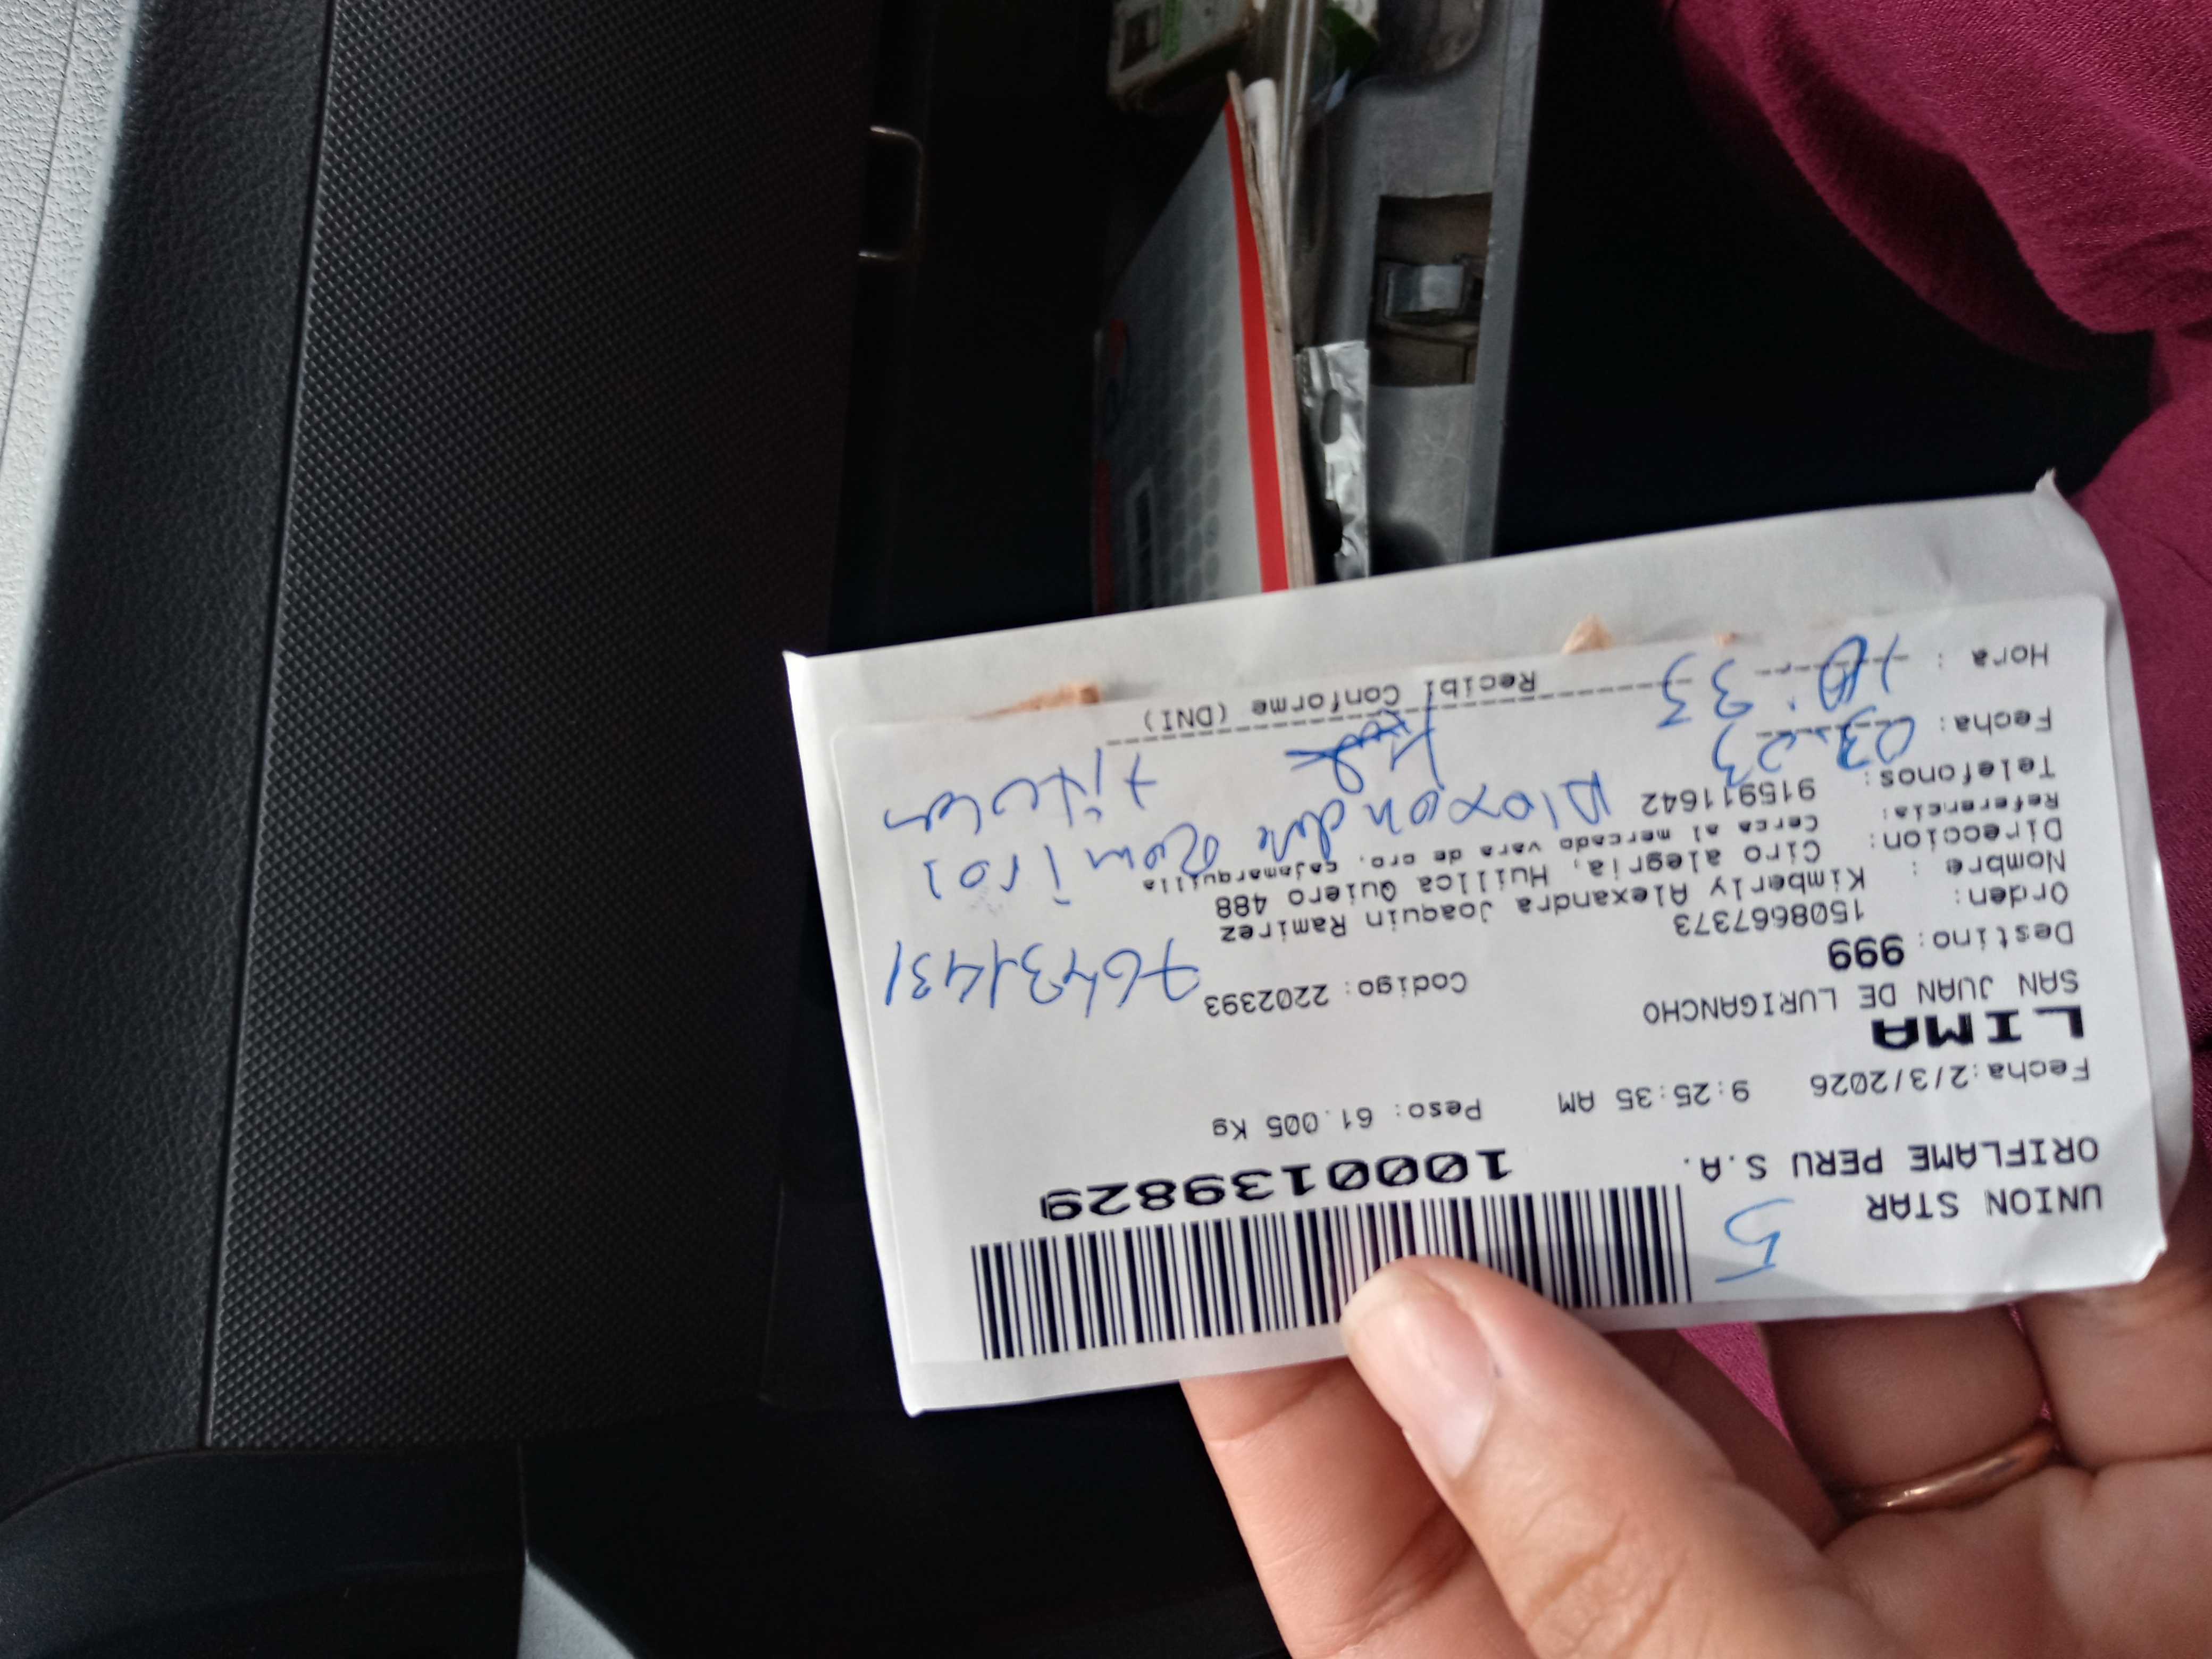 UNION STAR 5
ORIFLAME PERU S.A. 1000139829
Fecha:2/3/2026 9:25:35 AM Peso: 61.005 Kg
LIMA
SAN JUAN DE LURIGANCHO Codigo: 2202393
Destino: 999 76431431
Orden: 1508667373
Nombre : Kimberly Alexandra Joaquin Ramirez
Direccion: Ciro alegria, Huilca Quiero 488
Referencia: Cerca al mercado vara de oro, cajamarquilla
Telefonos: 915911642
titular
Fecha: 03.23
Hora : 10:33
Recibi Conforme (DNI)